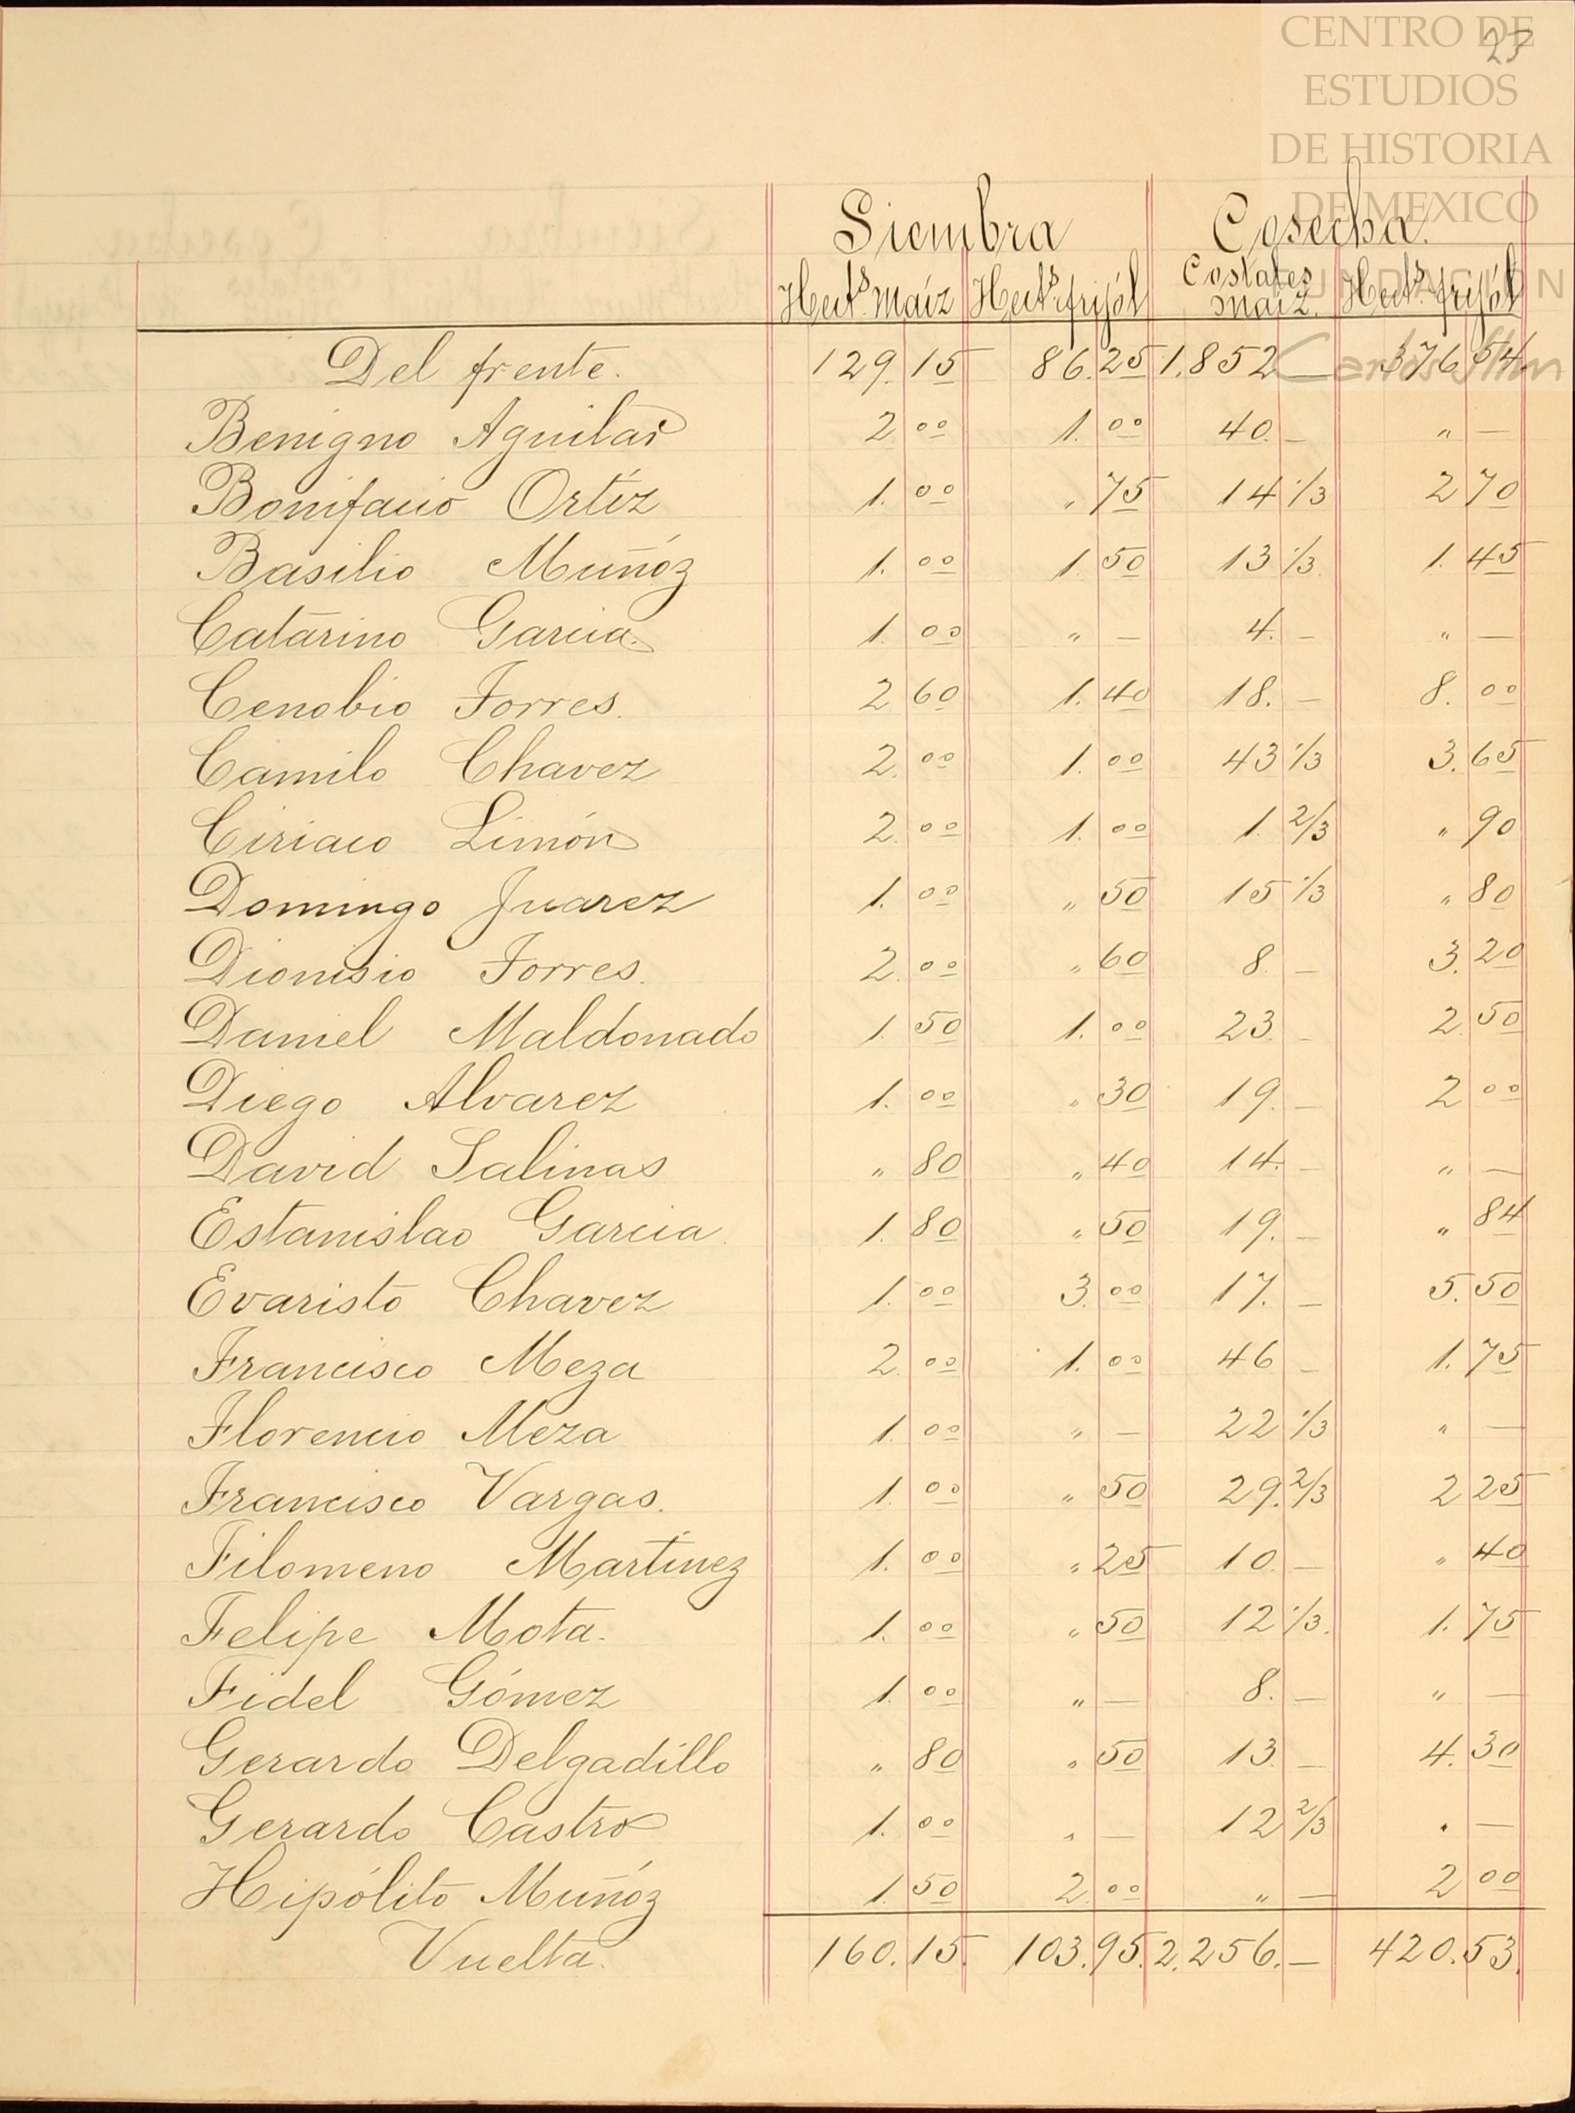 23
CENTRO DE
ESTUDIOS
DE HISTORIA
DE MEXICO
FUNDACIÓN
Carlos Slim
Siembra Cosecha.
Hect.s maíz Hect.s frijól Costales maíz. Hect.s frijól
Del frente. 129. 15 86. 25 1.852 — 376 54
Benigno Aguilar 2 00 1. 00 40. — " —
Bonifacio Ortíz 1. 00 " 75 14 1/3 2 70
Basilio Muñóz 1. 00 1 50 13 1/3 1. 45
Catarino Garcia. 1. 00 " — 4. — " —
Cenobio Torres. 2 60 1. 40 18. — 8. 00
Camilo Chavez 2. 00 1. 00 43 1/3 3. 65
Ciriaco Limón 2. 00 1. 00 1. 2/3 " 90
Domingo Juarez 1. 00 " 50 15 1/3 " 80
Dionisio Torres. 2. 00 " 60 8. — 3. 20
Daniel Maldonado 1. 50 1. 00 23. — 2. 50
Diego Alvarez 1. 00 " 30 19. — 2 00
David Salinas " 80 " 40 14. — " —
Estanislao Garcia. 1. 80 " 50 19. — " 84
Evaristo Chavez 1. 00 3. 00 17. — 5. 50
Francisco Meza 2. 00 1. 00 46 — 1. 75
Florencio Meza 1. 00 " — 22 1/3 " —
Francisco Vargas. 1. 00 " 50 29. 2/3 2 25
Filomeno Martinez 1. 00 " 25 10. — " 40
Felipe Mota. 1. 00 " 50 12 1/3. 1. 75
Fidel Gómez 1. 00 " — 8. — " —
Gerardo Delgadillo " 80 " 50 13. — 4. 30
Gerardo Castro 1. 00 " — 12 2/3 " —
Hipólito Muñóz 1. 50 2. 00 " — 2 00
Vuelta. 160. 15. 103. 95. 2.256. — 420. 53.